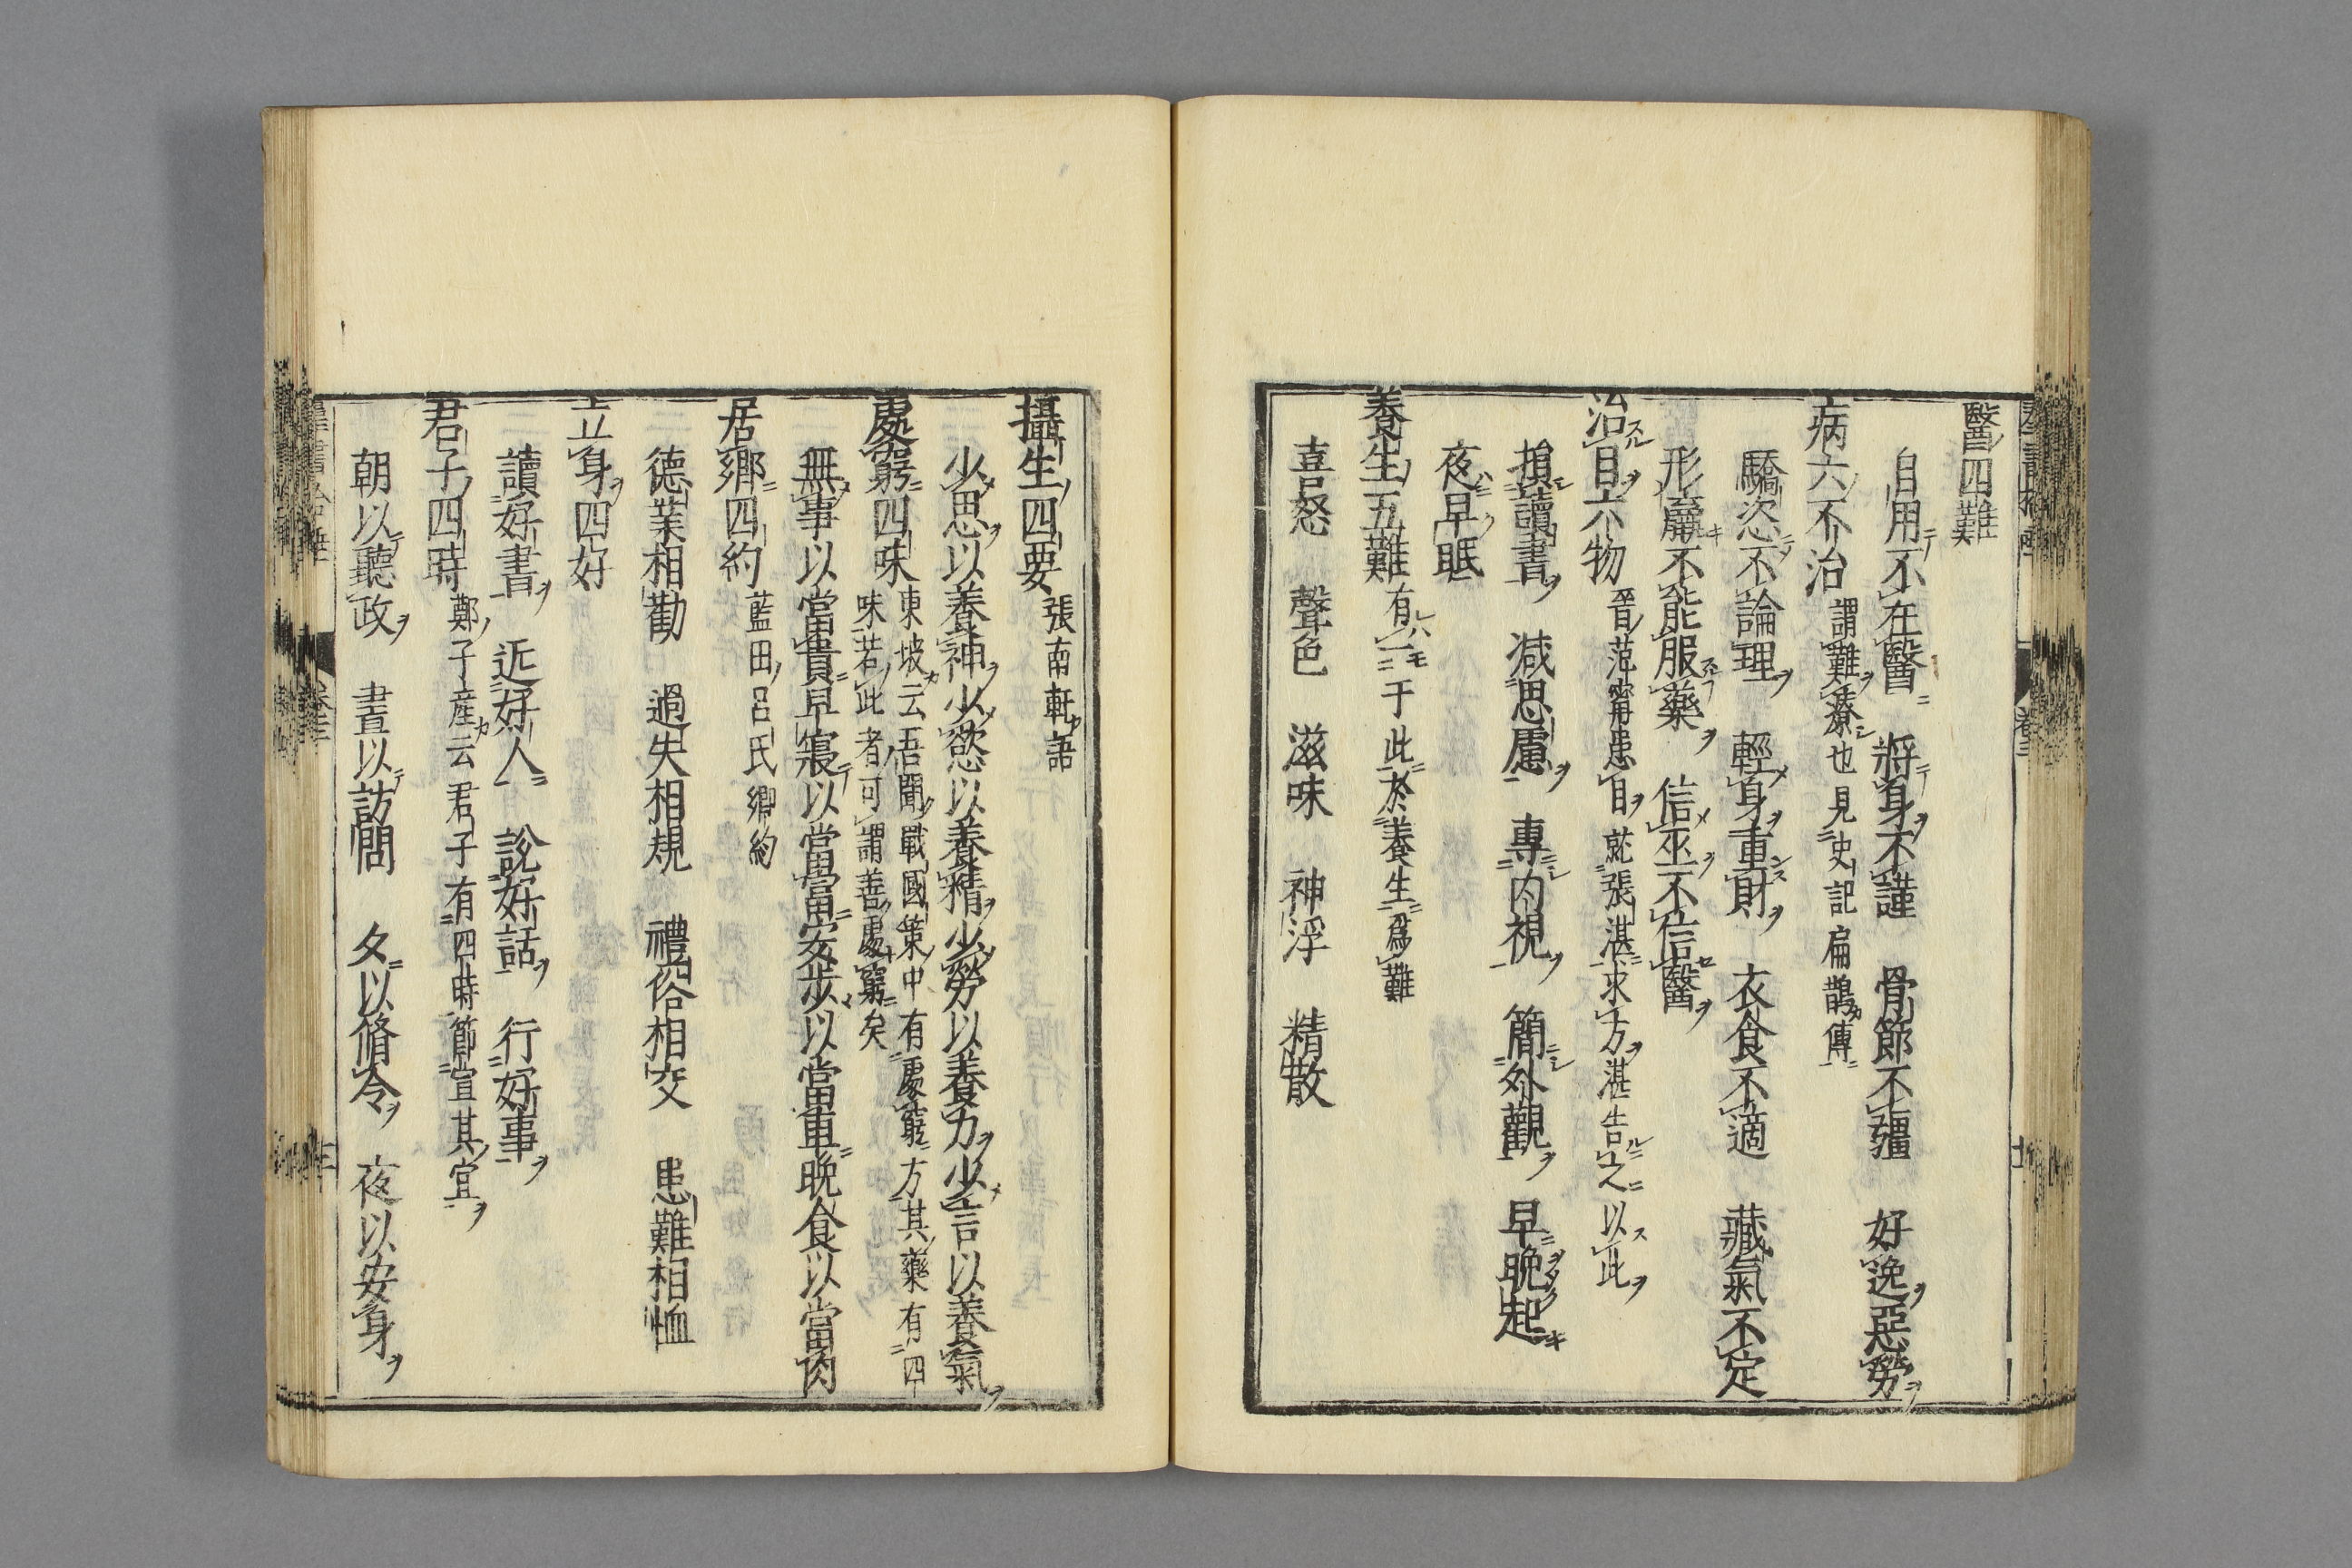 醫四難
自用不在醫　將身不謹　骨節不彊　好逸惡勞
病六不治
謂難療也見史記扁鵲傳
驕恣不論理　輕身重財　衣食不適　藏氣不定
形羸不能服藥　信巫不信醫
治目六物
晉范甯患目就張湛求方湛告之以此
損讀書　減思慮　專內視　簡外觀　早晩起
夜早眠
養生五難
有一于此於養生爲難
喜怒　聲色　滋味　神浮　精散
攝生四要
張南軒語
少思以養神少慾以養精少勞以養力少言以養氣
處窮四味
東坡云吾聞戰國策中有處窮方其藥有四
味若此者可謂善處窮矣
無事以當貴早寢以當富安步以當車晩食以當肉
居鄉四約
藍田呂氏鄉約
德業相勸　過失相規　禮俗相交　患難相恤
立身四好
讀好書　近好人　說好話　行好事
君子四時
鄭子產云君子有四時節宣其宜
朝以聽政　晝以訪問　夕以脩令　夜以安身